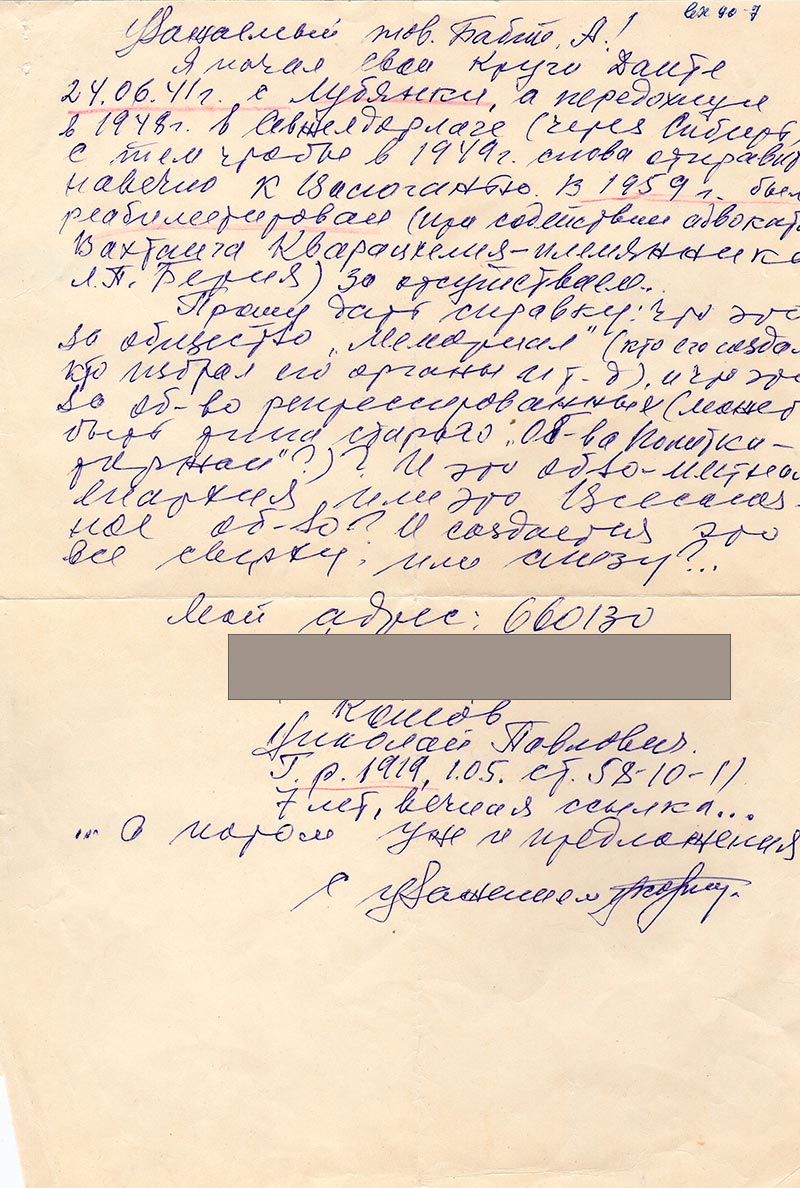 вх 90-7
Уважаемый тов. Бабий, А.!
Я начал свои круги Данте
24.06.41 г. с Лубянки, а передохнул
в 1948 г. в Севжелдорлаге (через Сибирь,
с тем чтобы в 1949 г. снова отправит
навечно к Васюганью. В 1959 г. был
реабилитирован (при содействии адвокат
Вахтанга Кварацхелия-племянника
Л.П. Берия) за отсутствием..
Прошу дать справку: что это
за общество „Мемориал" (кто его создал
кто избрал его органы и т-д), и что это
за об-во репрессированных (может
быть типа старого „Об-ва Политка-
торжан"?)? И это об-во-местная
или это Всесоюз-
ное об-во? И создается это
все сверху, или снизу?...
Мой адрес: 660130
Николай Павлович.
Г.р. 1919, 1.05. ст. 58-10-11
7 лет, вечная ссылка...
... А потом уже и предложения
С уважением